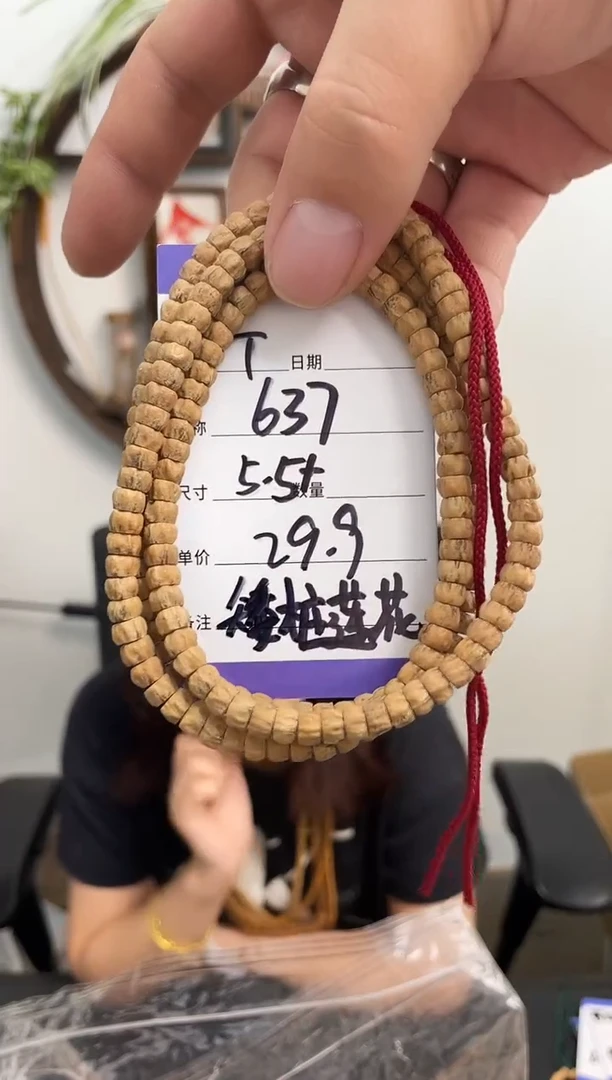 T 日期
称 637
尺寸 5.5+ 数量
单价 29.9
备注 矮桩莲花